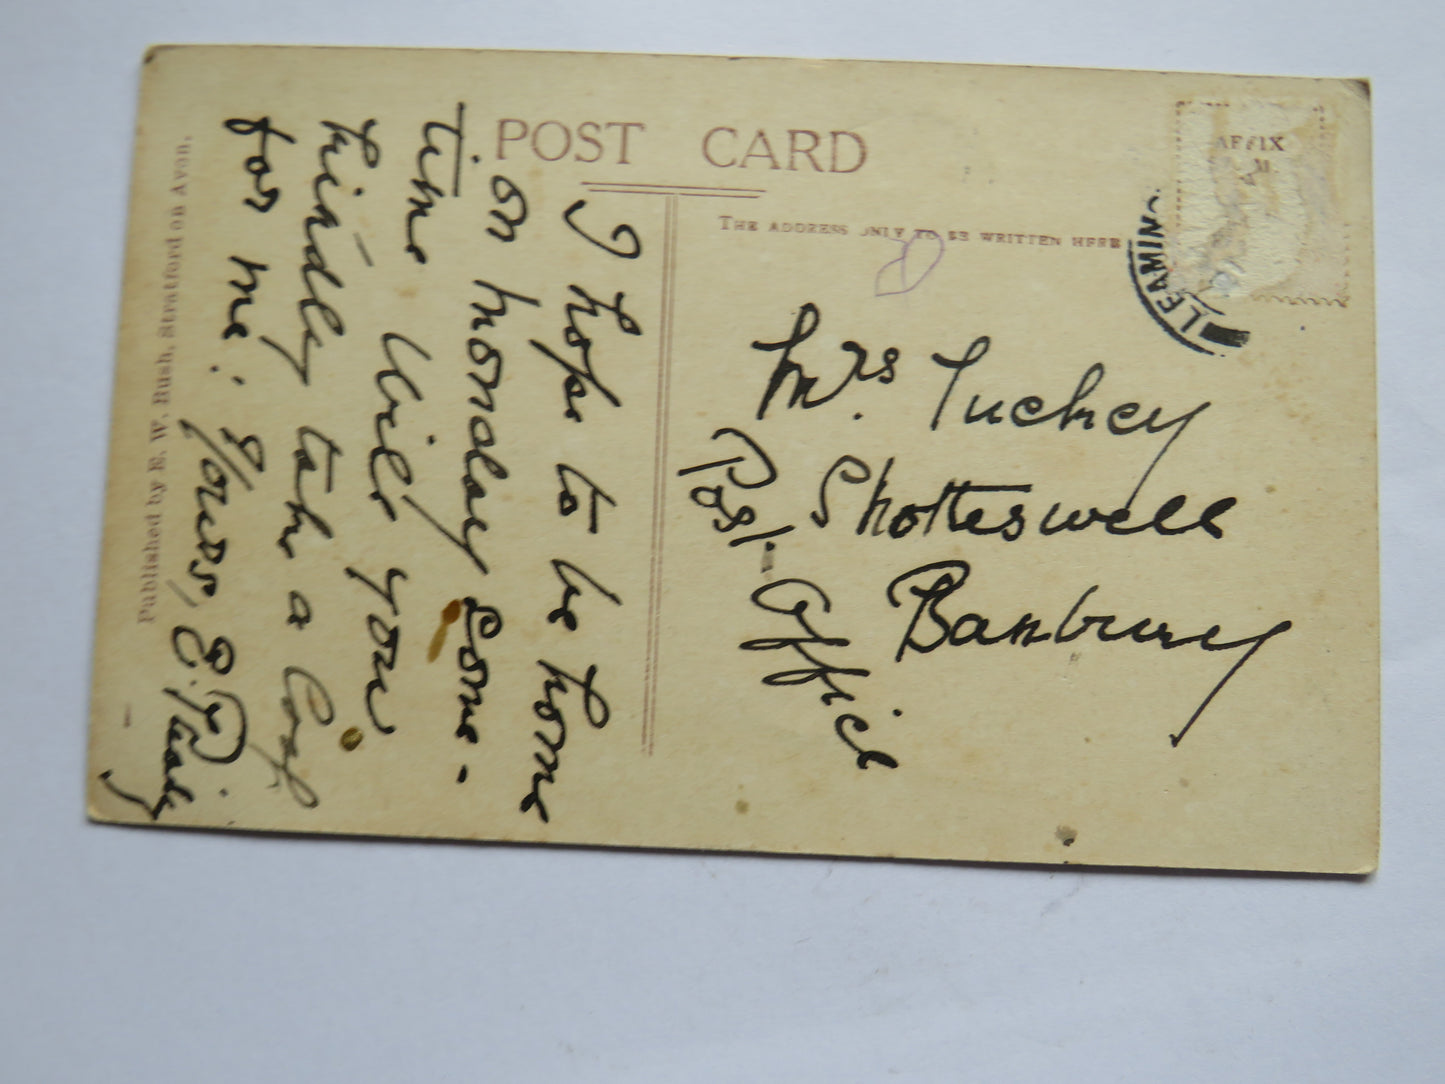 POST CARD
THE ADDRESS ONLY TO BE WRITTEN HERE
AFFIX
LEAMING
I hope to be home
on monday some-
time Will you
kindly take a loaf
for me: Yours, E.
Mrs Tuckey
Shotteswell
Banbury
Post-Office
Published by E. W. Bush, Stratford on Avon.